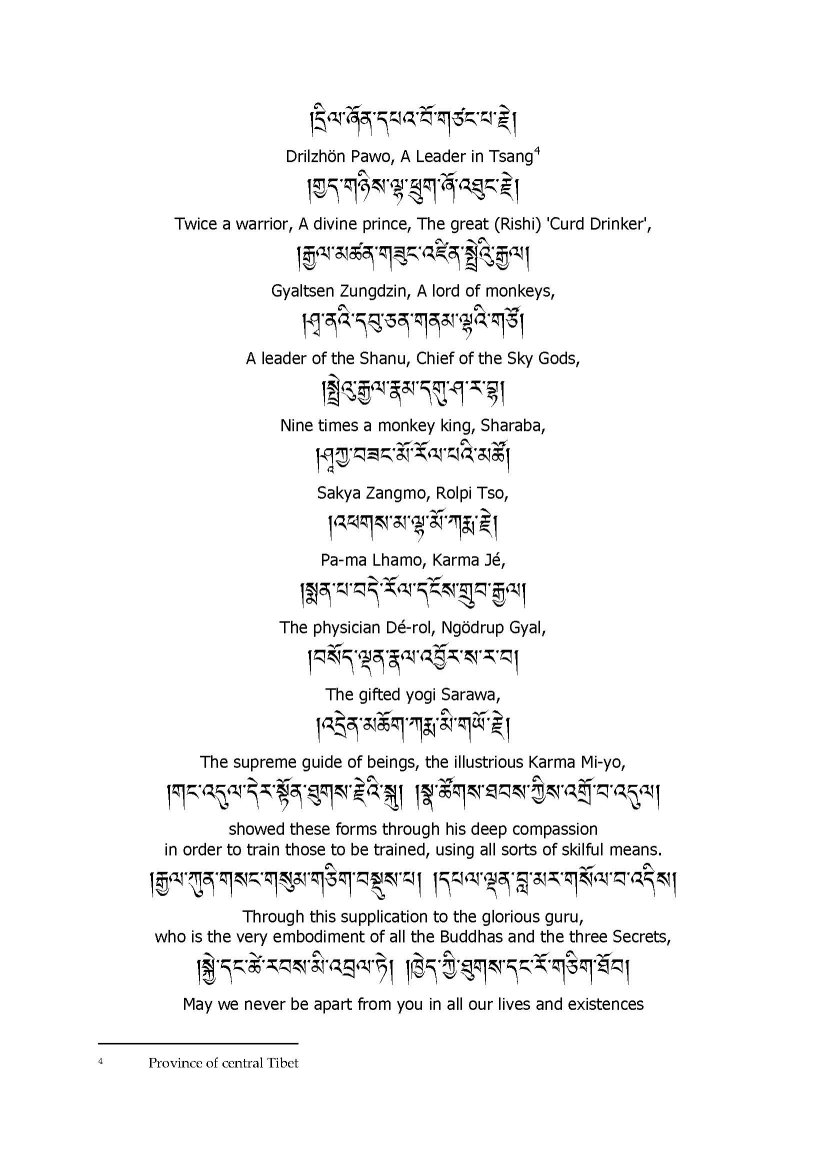 །དྲིལ་ཞོན་དཔའ་བོ་གཙང་པ་རྗེ།
Drilzhön Pawo, A Leader in Tsang4
།གྱད་གཉིས་ལྷ་ཕྲུག་ཞོ་འཐུང་རྗེ།
Twice a warrior, A divine prince, The great (Rishi) 'Curd Drinker',
།རྒྱལ་མཚན་གཟུང་འཛིན་སྤྲེའི་རྒྱལ།
Gyaltsen Zungdzin, A lord of monkeys,
།ཤ་ནའི་དབུ་ཅན་གནམ་ལྷའི་གཙོ།
A leader of the Shanu, Chief of the Sky Gods,
།སྤྲེའུ་རྒྱལ་རྣམ་དགུ་ཤ་ར་བྷ།
Nine times a monkey king, Sharaba,
།ཤཱཀྱ་བཟང་མོ་རོལ་པའི་མཚོ།
Sakya Zangmo, Rolpi Tso,
།འཕགས་མ་ལྷ་མོ་ཀརྨ་རྗེ།
Pa-ma Lhamo, Karma Jé,
།སྨན་པ་བདེ་རོལ་དངོས་གྲུབ་རྒྱལ།
The physician Dé-rol, Ngödrup Gyal,
།བསོད་ལྡན་རྣལ་འབྱོར་ས་ར་བ།
The gifted yogi Sarawa,
།འདྲེན་མཆོག་ཀརྨ་མི་གཡོ་རྗེ།
The supreme guide of beings, the illustrious Karma Mi-yo,
།གང་འདུལ་དེར་སྟོན་ཐུགས་རྗེའི་སྐུ། །སྣ་ཚོགས་ཐབས་ཀྱིས་འགྲོ་བ་འདུལ།
showed these forms through his deep compassion
in order to train those to be trained, using all sorts of skilful means.
།རྒྱལ་ཀུན་གསང་གསུམ་གཅིག་བསྡུས་པ། །དཔལ་ལྡན་བླ་མར་གསོལ་བ་འདིས།
Through this supplication to the glorious guru,
who is the very embodiment of all the Buddhas and the three Secrets,
།སྐྱེ་དང་ཚེ་རབས་མི་འབྲལ་ཏེ། །ཁྱེད་ཀྱི་ཐུགས་དང་རོ་གཅིག་ཐོབ།
May we never be apart from you in all our lives and existences
4 Province of central Tibet